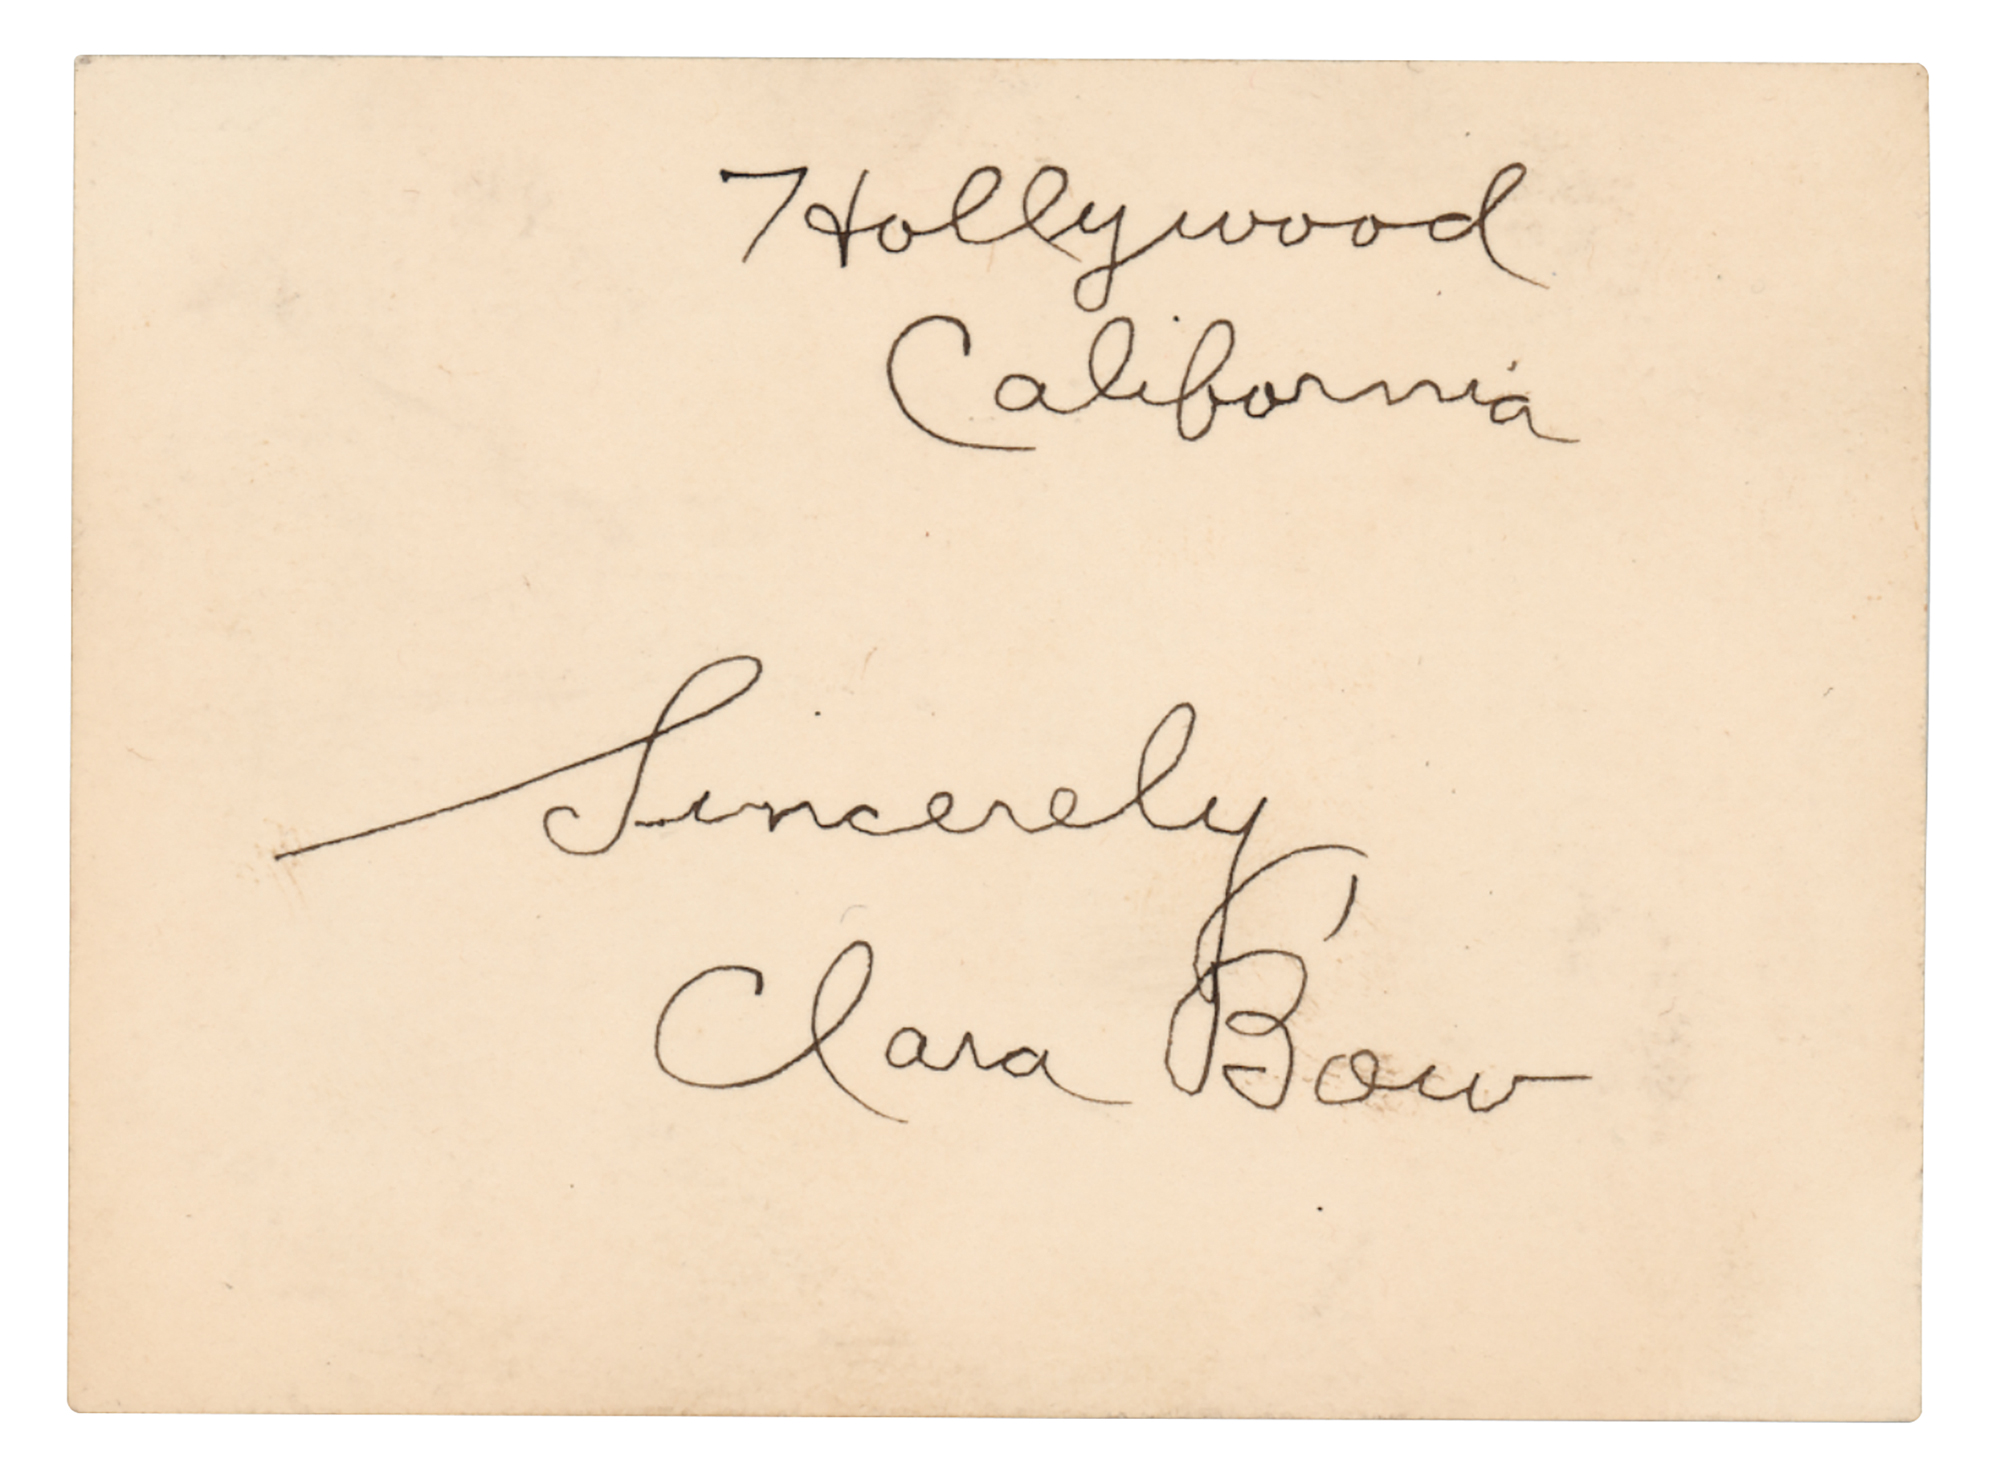 Hollywood
California
Sincerely
Clara Bow